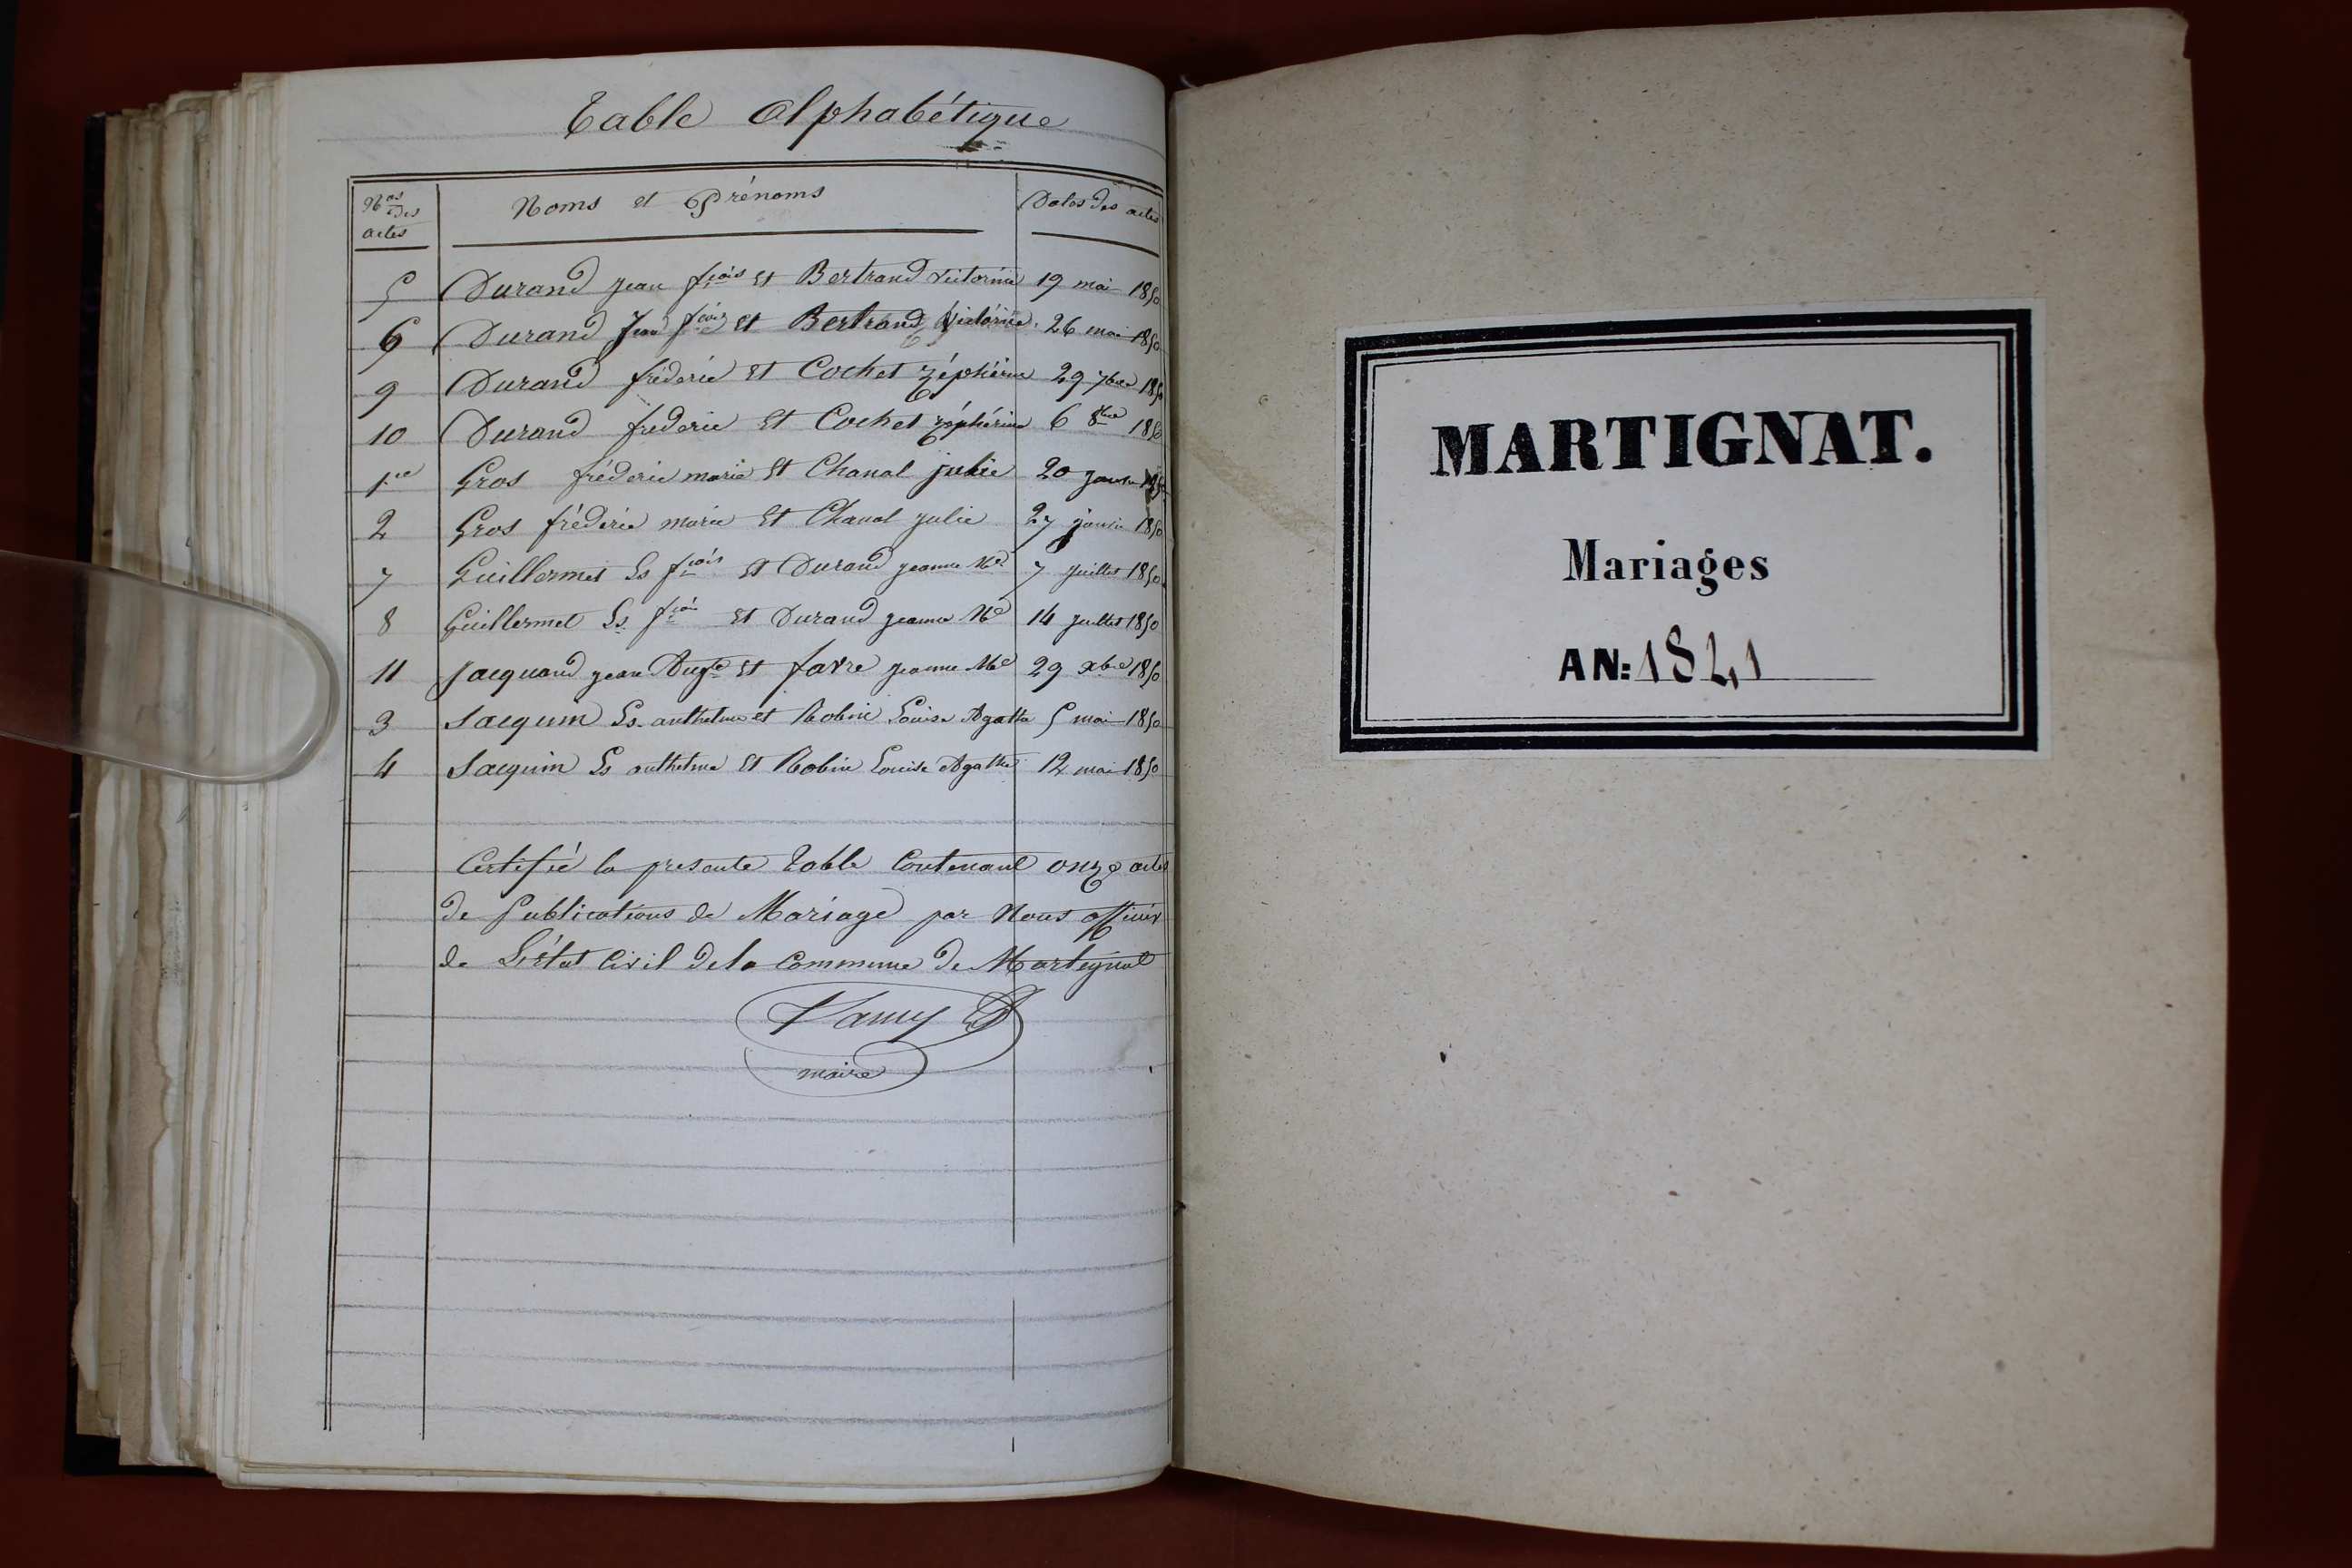 Table Alphabétique
Nos des actes
Noms et Prénoms
Dates des actes
5 Durand jean fçois et Bertrand victorine 19 mai 1850
6 Durand Jean fçois et Bertrand Victorine 26 mai 1850
9 Durand fréderic et Cochet zéphirine 29 7bre 1850
10 Durand fréderic et Cochet zéphirine 6 8bre 1850
1re Gros fréderic marie et Chanal julie 20 janvier 1850
2 Gros fréderic marie et Chanal julie 27 janvier 1850
7 Guillermet Ls fçois et Durand jeanne Me 7 juillet 1850
8 Guillermet Ls fçois et Durand jeanne Me 14 juillet 1850
11 Jacquand jean Augte et favre jeanne Me 29 xbre 1850
3 Jacquin Ls anthelme et Robin Louise Agathe 5 mai 1850
4 Jacquin Ls anthelme et Robin Louise Agathe 12 mai 1850
Certifié la presente Table Contenant onze actes
de Publications de Mariage par Nous officier
de L'état Civil de la Commune de Martignat
maire
MARTIGNAT.
Mariages
AN: 1821